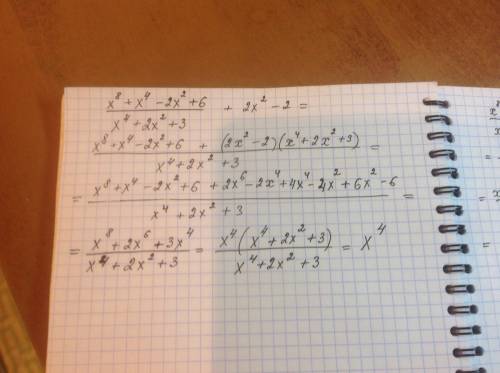 (x⁸ + x⁴ - 2x² + 6) / (x⁴ + 2x² + 3) + 2x² - 2 =
(x⁸ + x⁴ - 2x² + 6 + (2x² - 2)(x⁴ + 2x² + 3)) / (x⁴ + 2x² + 3) =
= (x⁸ + x⁴ - 2x² + 6 + 2x⁶ - 2x⁴ + 4x⁴ - 4x² + 6x² - 6) / (x⁴ + 2x² + 3) =
= (x⁸ + 2x⁶ + 3x⁴) / (x⁴ + 2x² + 3) = x⁴(x⁴ + 2x² + 3) / (x⁴ + 2x² + 3) = x⁴